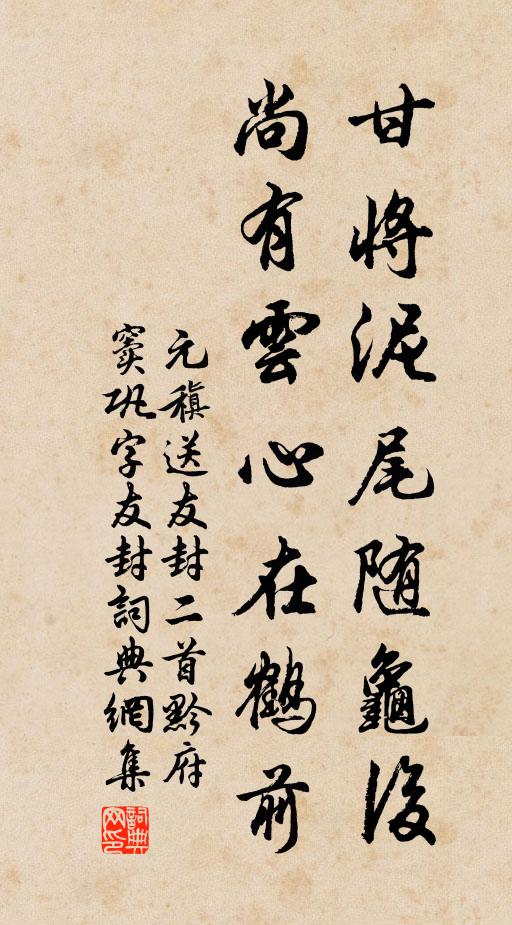 甘將泥尾随龜後
尚有雲心在鶴前
元稹送友封二首黔府
窦巩字友封詞典網集
詞典网印